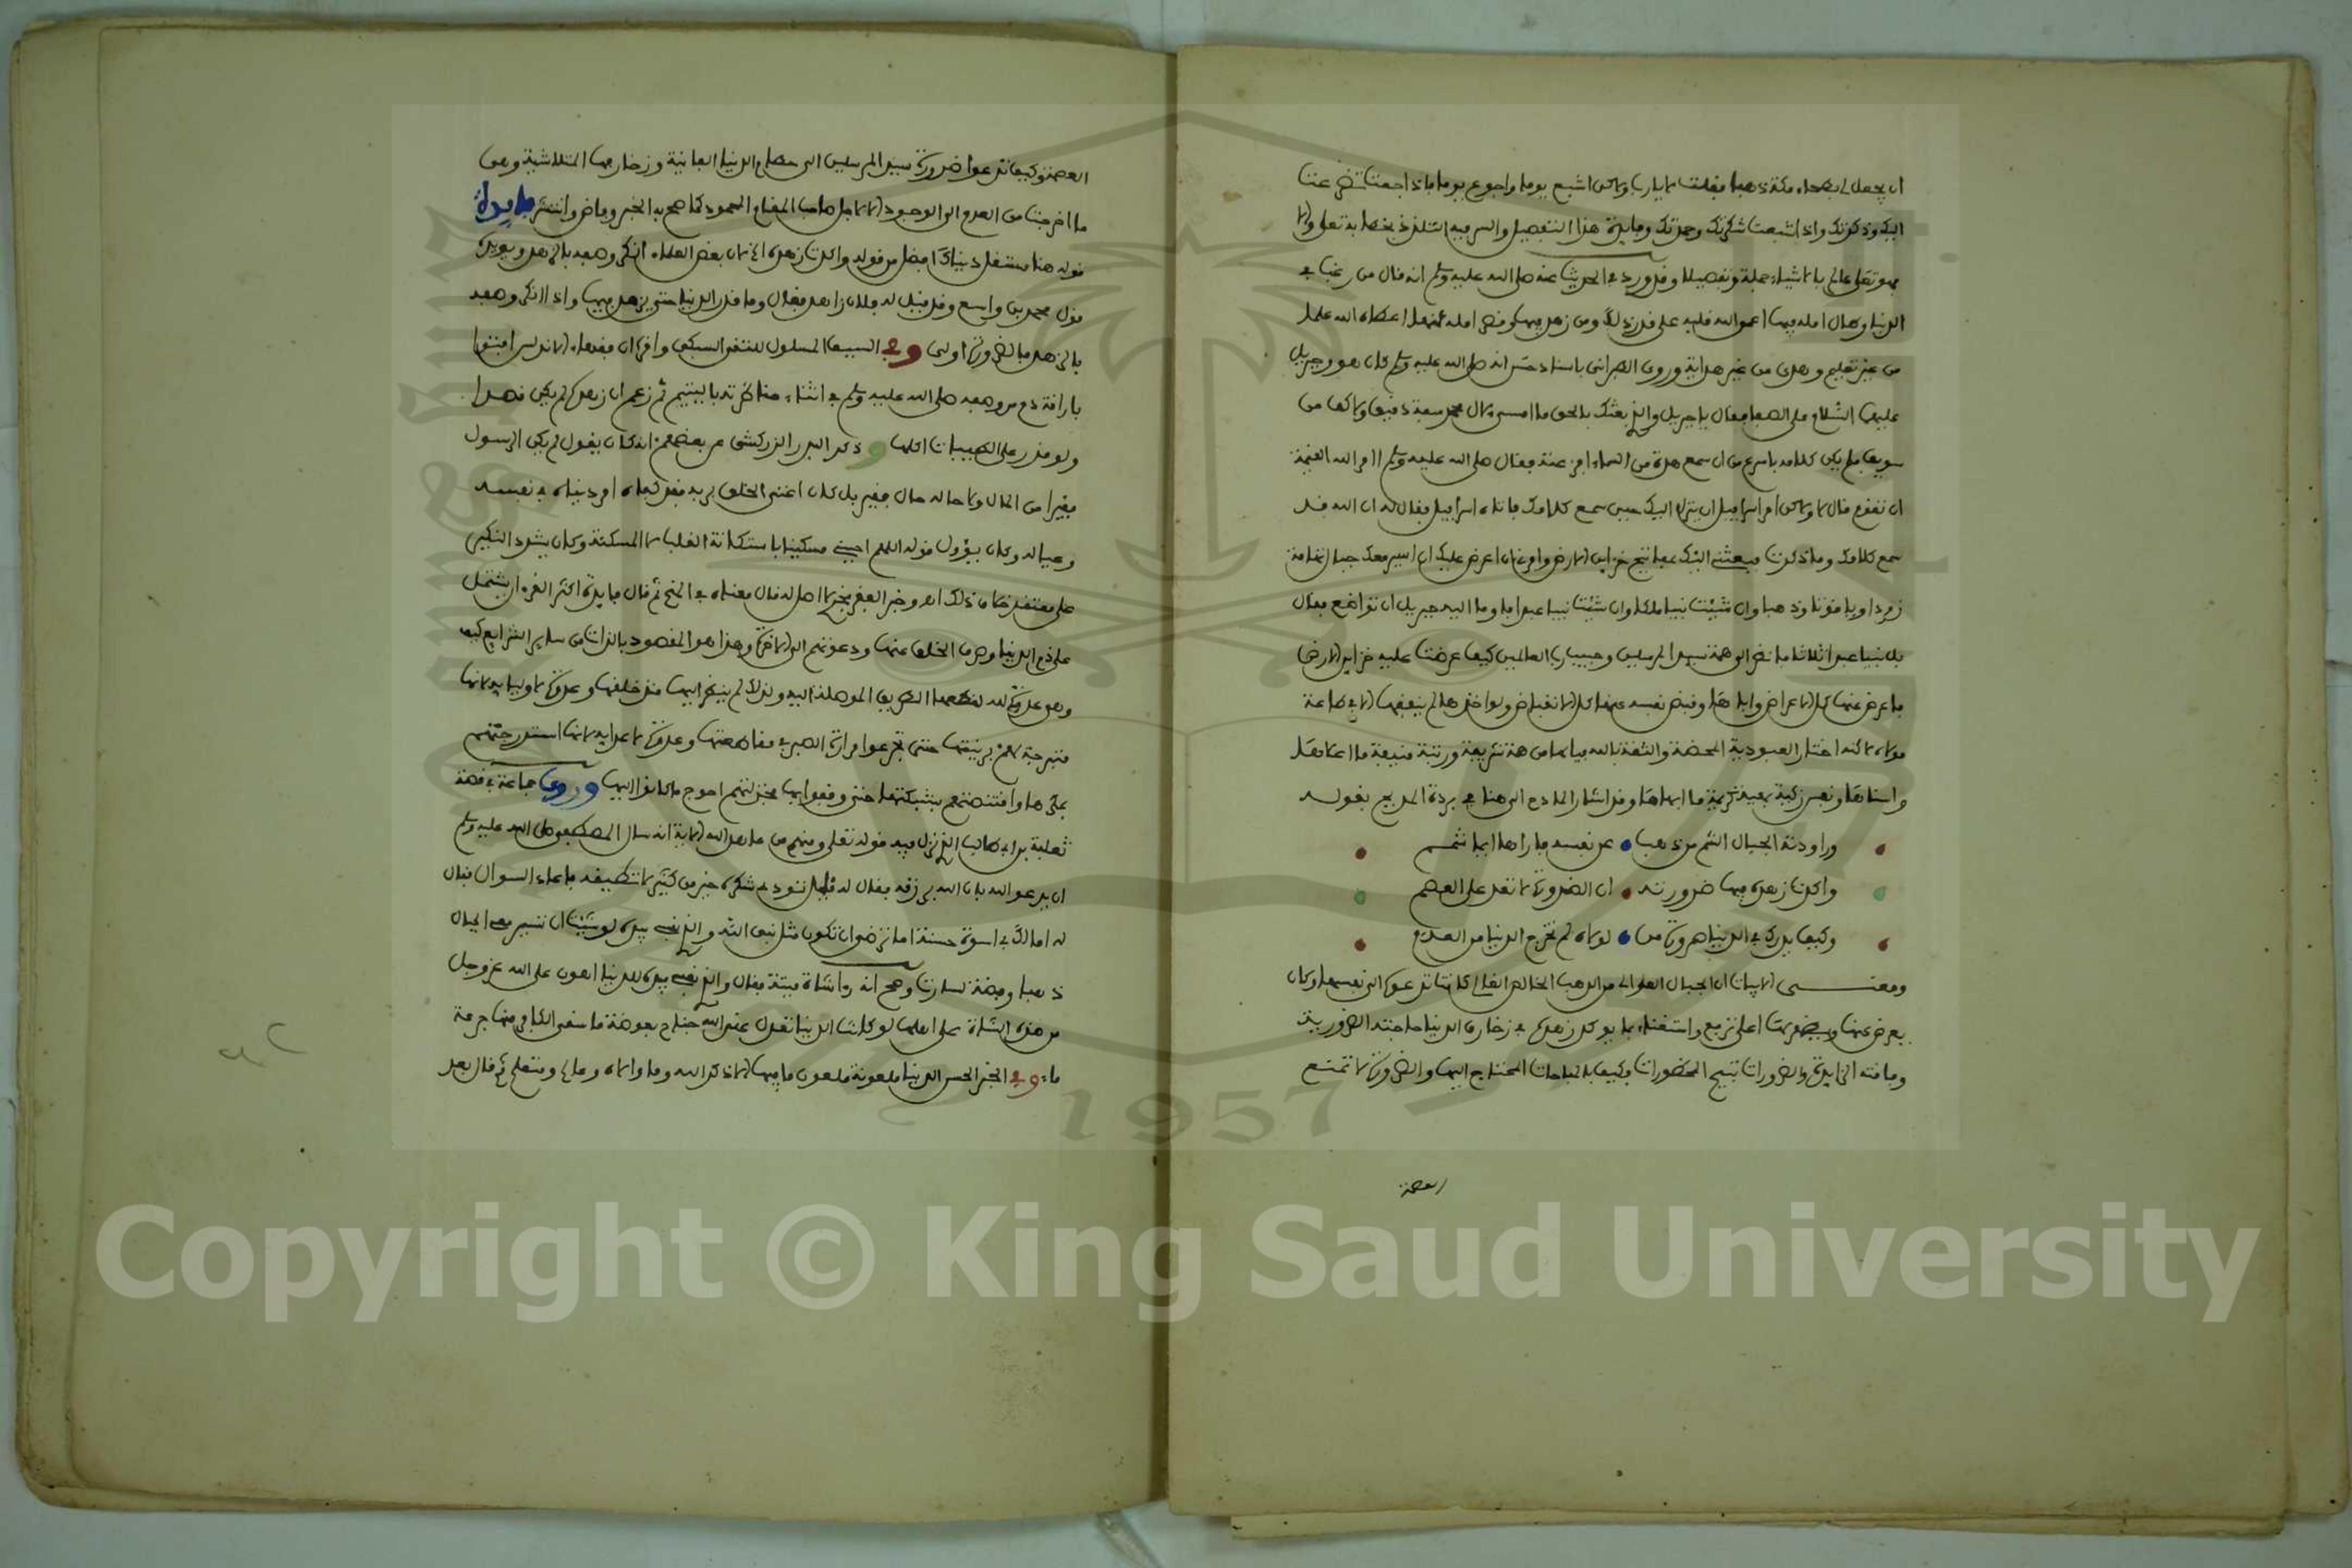 ان يجعل لى بطحاء مكة ذهبا فقلت لا يا رب ولاكن اشبع يوما واجوع يوما فاذا جعت تضرعت
اليك وذكرتك واذا شبعت شكرتك وحمدتك وفايدة هذا التفصيل والسر فيه التلذذ بخطابه تعلى والا
فهو تعلى عالم بالاشياء جملة وتفصيلا وقد ورد في الحديث عنه صلى الله عليه وسلم انه قال من رغب في
الدنيا وطال امله فيها اعمى الله قلبه على قدر ذلك ومن زهد فيها وقصر امله فيها اعطاه الله علما
من غير تعليم وهدى من غير هداية وروى الطبرانى باسناد حسن انه صلى الله عليه وسلم كان هو وجبريل
عليهما السلام على الصفا فقال يا جبريل والذي بعثك بالحق ما امسى لال محمد سفة دقيق ولا كف من
سويق فلم يكن كلامه باسرع من ان سمع هدة من السماء افزعته فقال صلى الله عليه وسلم اامر الله القيمة
ان تقوم قال لا ولاكن امر اسرافيل ان ينزل اليك حين سمع كلامك فاتاه اسرافيل فقال له ان الله قد
سمع كلامك وما ذكرت فبعثنى اليك بمفاتيح خزاين الارض وامرنى ان اعرض عليك ان اسير معك جبال تهامة
زمردا وياقوتا وذهبا وان شئت نبيا ملكا وان شئت نبيا عبدا فاوما اليه جبريل ان تواضع فقال
بل نبيا عبدا ثلاثا فانظر الى همة سيد المرسلين وحبيب رب العالمين كيف عرضت عليه خزاين الارض
فاعرض عنها كل الاعراض واباها وقبض نفسه عنها كل الانقباض ولو اخذها لم ينفقها الا في طاعة
مولاه لاكنه اختار العبودية المحضة والثقة بالله فيا لها من همة شريفة ورتبة منيفة ما اعلاها
واسناها ونفس زكية كريمة ما ابهاها وقد اشار المادح الى هنا في بردة المديح بقوله
وراودته الجبال الشم من ذهب • عن نفسه فاراها ايما شمم
واكدت زهده فيها ضرورته • ان الضرورة لا تعدو على العصم
وكيف يدعوا الى الدنيا ضرورة من • لولاه لم تخرج الدنيا من العدم
ومعنى الابيات ان الجبال العوالي من الذهب الخالص الغالى كانت تدعوه الى نفسها وكان
يعرض عنها ويظهر لها اعلى ترفع واستغناء بما يوكد زهده في زخارف الدنيا حاجته الضرورية
وفاقته الزايدة والضرورات تبيح المحظورات وكيف بالمباحات المحتاج اليها والضرورة لا تمنع
العصمة
العصمة وكيف تدعوا ضرورة سيد المرسلين الى حطام الدنيا الفانية وزخارفها المتلاشية وهى
ما اخرجت من العدم الى الوجود الا لاجل صاحب المقام المحمود كما صح به الخبر وفاض وانتشر فايدة
قوله هنا من شغل دنياك افضل من قوله واكدت زهده الخ لان بعض العلماء انكر وصفه بالزهد ويويده
قول محمد بن واسع وقد قيل له فلان زاهد فقال وما قدر الدنيا حتى يزهد فيها واذا انكر وصفه
بالزهد فبالضرورة اولى وفي السيف المسلول للتقى السبكى واقره ان فقهاء الاندلس افتوا
باراقة دم من وصفه صلى الله عليه وسلم في اثناء مناظرته باليتيم ثم زعم ان زهده لم يكن قصدا
ولو قدر على الطيبات اكلها وذكر البدر الزركشى عن بعضهم انه كان يقول لم يكن الرسول
فقيرا من المال ولا حاله حال فقير بل كان اغنى الخلق بربه فقد كفاه امر دنياه في نفسه
وعياله وكان يؤول قوله اللهم احينى مسكينا باستكانة القلب لا المسكنة وكان يشدد النكير
على معتقد خلاف ذلك اهـ وخبر الفقر فخرى لا اصل له قال معناه في المنح ثم قال فايدة اكثر القرءان يشتمل
على ذم الدنيا وصرف الخلق عنها ودعوتهم الى الاخرة وهذا هو المقصود بالذات من ساير الشرايع كيف
وهى عدوة لله لقطعها الطريق الموصلة اليه ولذلك لم ينظر اليها منذ خلقها وعدوة لاوليايه لانها
متبرجة لهم بزينتها حتى تجرعوا مرارة الصبر في مقاطعتها وعدوة لاعدايه لانها استدرجتهم
بمكرها واقتنصتهم بشبكتها حتى وقفوا فيها فخذلتهم احوج ما كانوا اليها وروى جماعة في قصة
ثعلبة بن ابي حاطب الذي نزل فيه قوله تعلى ومنهم من عاهد الله الاية انه سال المصطفى صلى الله عليه وسلم
ان يدعو الله بان الله يرزقه فقال له قليل تودى شكره خير من كثير لا تطيقه فاعاد السوال فقال
له اما لك في اسوة حسنة اما ترضى ان تكون مثل نبى الله والذي نفسى بيده لو شئت ان تسير معى الجبال
ذهبا وفضة لسارت وصح انه را شاة ميتة فقال والذي نفسى بيده للدنيا اهون على الله عز وجل
من هذه الشاة على اهلها لو كانت الدنيا تعدل عند الله جناح بعوضة ما سقى الكافر منها جرعة
ماء وفي الخبر الحسن الدنيا ملعونة ملعون ما فيها الا ذكر الله وما والاه وعالم ومتعلم ثم قال بعد
Copyright © King Saud University
1957